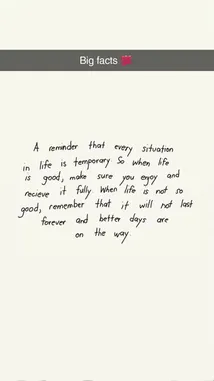 Big facts 💓
A reminder that every situation
in life is temporary So when life
is good, make sure you enjoy and
recieve it fully When life is not so
good, remember that it will not last
forever and better days are
on the way.